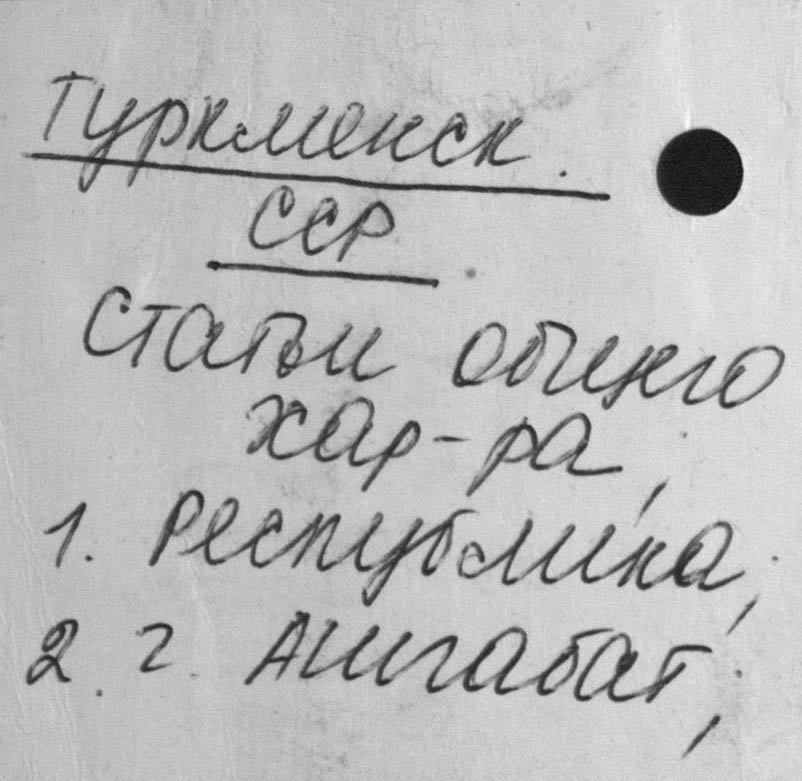 Туркменск.
ССР.
Статьи общего
хар-ра,
1. Республика,
2. г. Ашгабат,